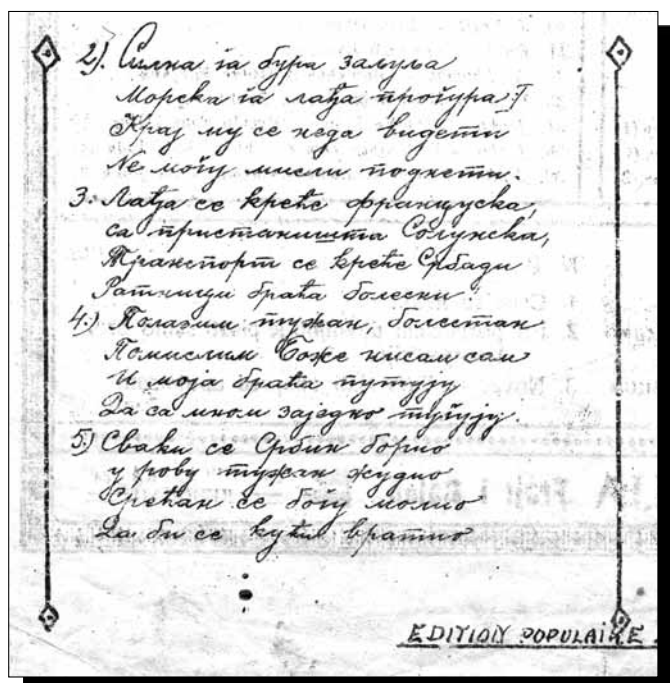 2). Силна га бура заљуља
Морска га лађа прогура :Ţ
Крај му се неда видети
Не могу мисли поднети.
3: Лађа се креће француска,
са пристаништа Солунска,
Транспорт се креће Србади
Ратници браћа болесни
4.) Полазим тужан, болестан
Помислим Боже нисам сам
И моја браћа путују
Да са мном заједно тугују.
5) Сваки се Србин борио
у робу тужан жудио
Срећан се богу молио
Да би се кући вратио
EDITION POPULAIRE.